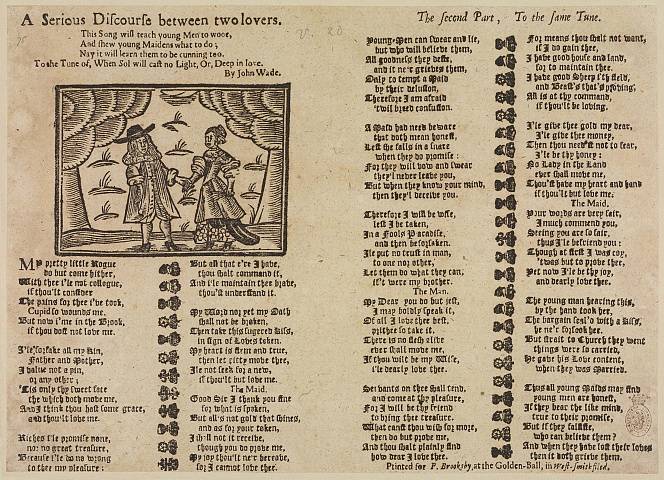 A Serious Discourse between two lovers.
This Song will teach young Men to wooe,
And shew young Maidens what to do;
Nay it will learn them to be cunning too.
To the Tune of, When Sol will cast no Light, Or, Deep in love.
By John Wade.
MY pretty little Rogue
do but come hither,
With thee i'le not collogue,
if thou'lt consider
The pains for thee i've took,
Cupid so wounds me.
But now i'me in the Brook,
if thou dost not love me.
I'le forsake all my Kin,
Father and Mother,
I value not a pin,
or any other;
'Tis only thy sweet face
the which doth move me,
And I think thou hast some grace,
and thou'lt love me.
Riches i'le promise none,
no: no great treasure,
Because i'le do no wrong
to thee my pleasure:
But all that e're I have,
thou shalt command it,
And i'le maintain thee brave,
thou'st understand it.
My Word nor yet my Oath
shall not be broken,
Then take this sugered Kiss,
in sign of Loves token.
My heart is firm and true,
then let pitty move thee,
Ile not seek for a new,
if thou'lt but love me.
The Maid.
Good Sir I thank you fine
for what is spoken,
But all's not gold that shines,
and as for your token,
I shall not it receive,
though you do prove me,
My joy thou'lt ne'r bereave,
for I cannot love thee.
The second Part, To the same Tune.
Young-Men can swear and lie,
but who will believe them,
All goodness they defie,
and it ne'r grieves them,
Only to tempt a Maid
by their delusion,
Therefore I am afraid
'twill breed confusion.
A Maid had need beware
that doth mean honest,
Lest she falls in a snare
when they do promise:
For they will vow and swear
they'l never leave you,
But when they know your mind,
then they'l deceive you.
Therefore I will be wise,
lest I be taken,
In a Fools Paradise,
and then be forsaken.
Ile put no trust in man,
to one nor other,
Let them do what they can,
if't were my brother.
The Man.
My Dear you do but jest,
I may boldly speak it,
Of all I love thee best,
prithee so take it.
There is no flesh else
ever shall move me,
If thou wilt be my Wife,
i'le dearly love thee.
Servants on thee shall tend,
and come at thy pleasure,
For I will be thy friend
to bring thee treasure.
What canst thou wish for more,
then do but prove me,
And thou shalt plainly find
how dear I love thee.
For means thou shalt not want,
if I do gain thee,
I have good house and land,
for to maintain thee.
I have good Sheep i'th field,
and Beast that's proving,
All is at thy command,
if thou'lt be loving.
I'le give thee gold my dear,
I'le give thee money,
Then thou needst not to fear,
I'le be thy honey:
No Lady in the Land
ever shall move me,
Thou'st have my heart and hand
if thou'lt but love me.
The Maid.
Your words are very fair,
I much commend you,
Seeing you are so fair,
thus I'le befriend you:
Though at first I was coy,
t'was but to prove thee,
Yet now I'le be thy joy,
and dearly love thee.
The young man hearing this,
by the hand took her,
The bargain seal'd with a Kiss,
he ne'r forsook her.
But strait to Church they went
things were so carried,
He gave his Love content,
when they was Married.
Thus all young Maids may find
young men are honest,
If they bear the like mind,
true to their promise,
But if they falsifie,
who can believe them?
And when they have lost their loves
then it doth grieve them.
Printed for P. Brooksby, at the Golden-Ball, in West-smithfiled.